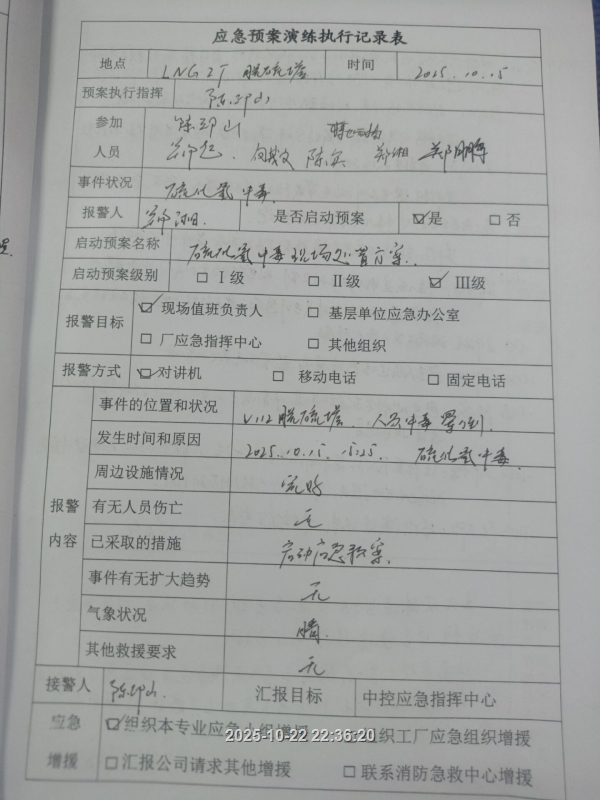 应急预案演练执行记录表
地点 LNG 2T 脱硫塔 时间 2025.10.15
预案执行指挥 陈印山
参加人员 陈印山
陈实 郑湘 郑鹏
事件状况 硫化氢中毒
报警人 是否启动预案 ☑是 □否
启动预案名称 硫化氢中毒现场处置方案
启动预案级别 □Ⅰ级 □Ⅱ级 ☑Ⅲ级
报警目标 ☑现场值班负责人 □基层单位应急办公室
□厂应急指挥中心 □其他组织
报警方式 ☑对讲机 □移动电话 □固定电话
报警内容
事件的位置和状况 V112脱硫塔 人员中毒晕倒.
发生时间和原因 2025.10.15. 15:25. 硫化氢中毒.
周边设施情况 完好
有无人员伤亡 无
已采取的措施 启动应急预案.
事件有无扩大趋势 无
气象状况 晴.
其他救援要求 无
接警人 陈印山. 汇报目标 中控应急指挥中心
应急增援 ☑组织本专业应急小组增援 组织工厂应急组织增援
□汇报公司请求其他增援 □联系消防急救中心增援
2025-10-22 22:36:20